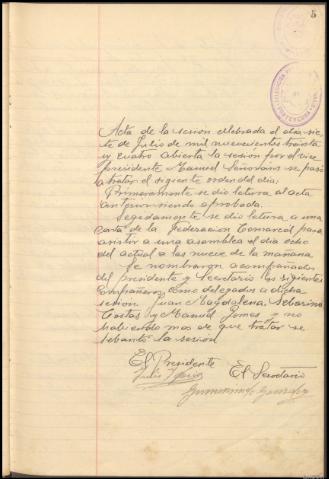 5
Acta de la sesion celebrada el dia sie
te de Julio de mil nuevecientos trainta
y cuatro abierta la sesion por el vice
presidente Manuel Señorans se paso
a tratar el sigiente orden del dia.
Primeramente se dio letura al acta
anterior siendo aprobada.
Segidamente se dio letura a una
carta de la Federacion Comarcal para
asistir a una asamblea el dia ocho
del actual a las nueve de la mañana
Se nombraron acompañados
del presidente y Secretario los sigientes
compañeros como delegados a dicha
sesion Juan Magdalena, Seberino
Costas y Manuel Gomas y no
habiendo mas de que tratar se
lebantó la sesion
El Presidente
El Secretario
Julio